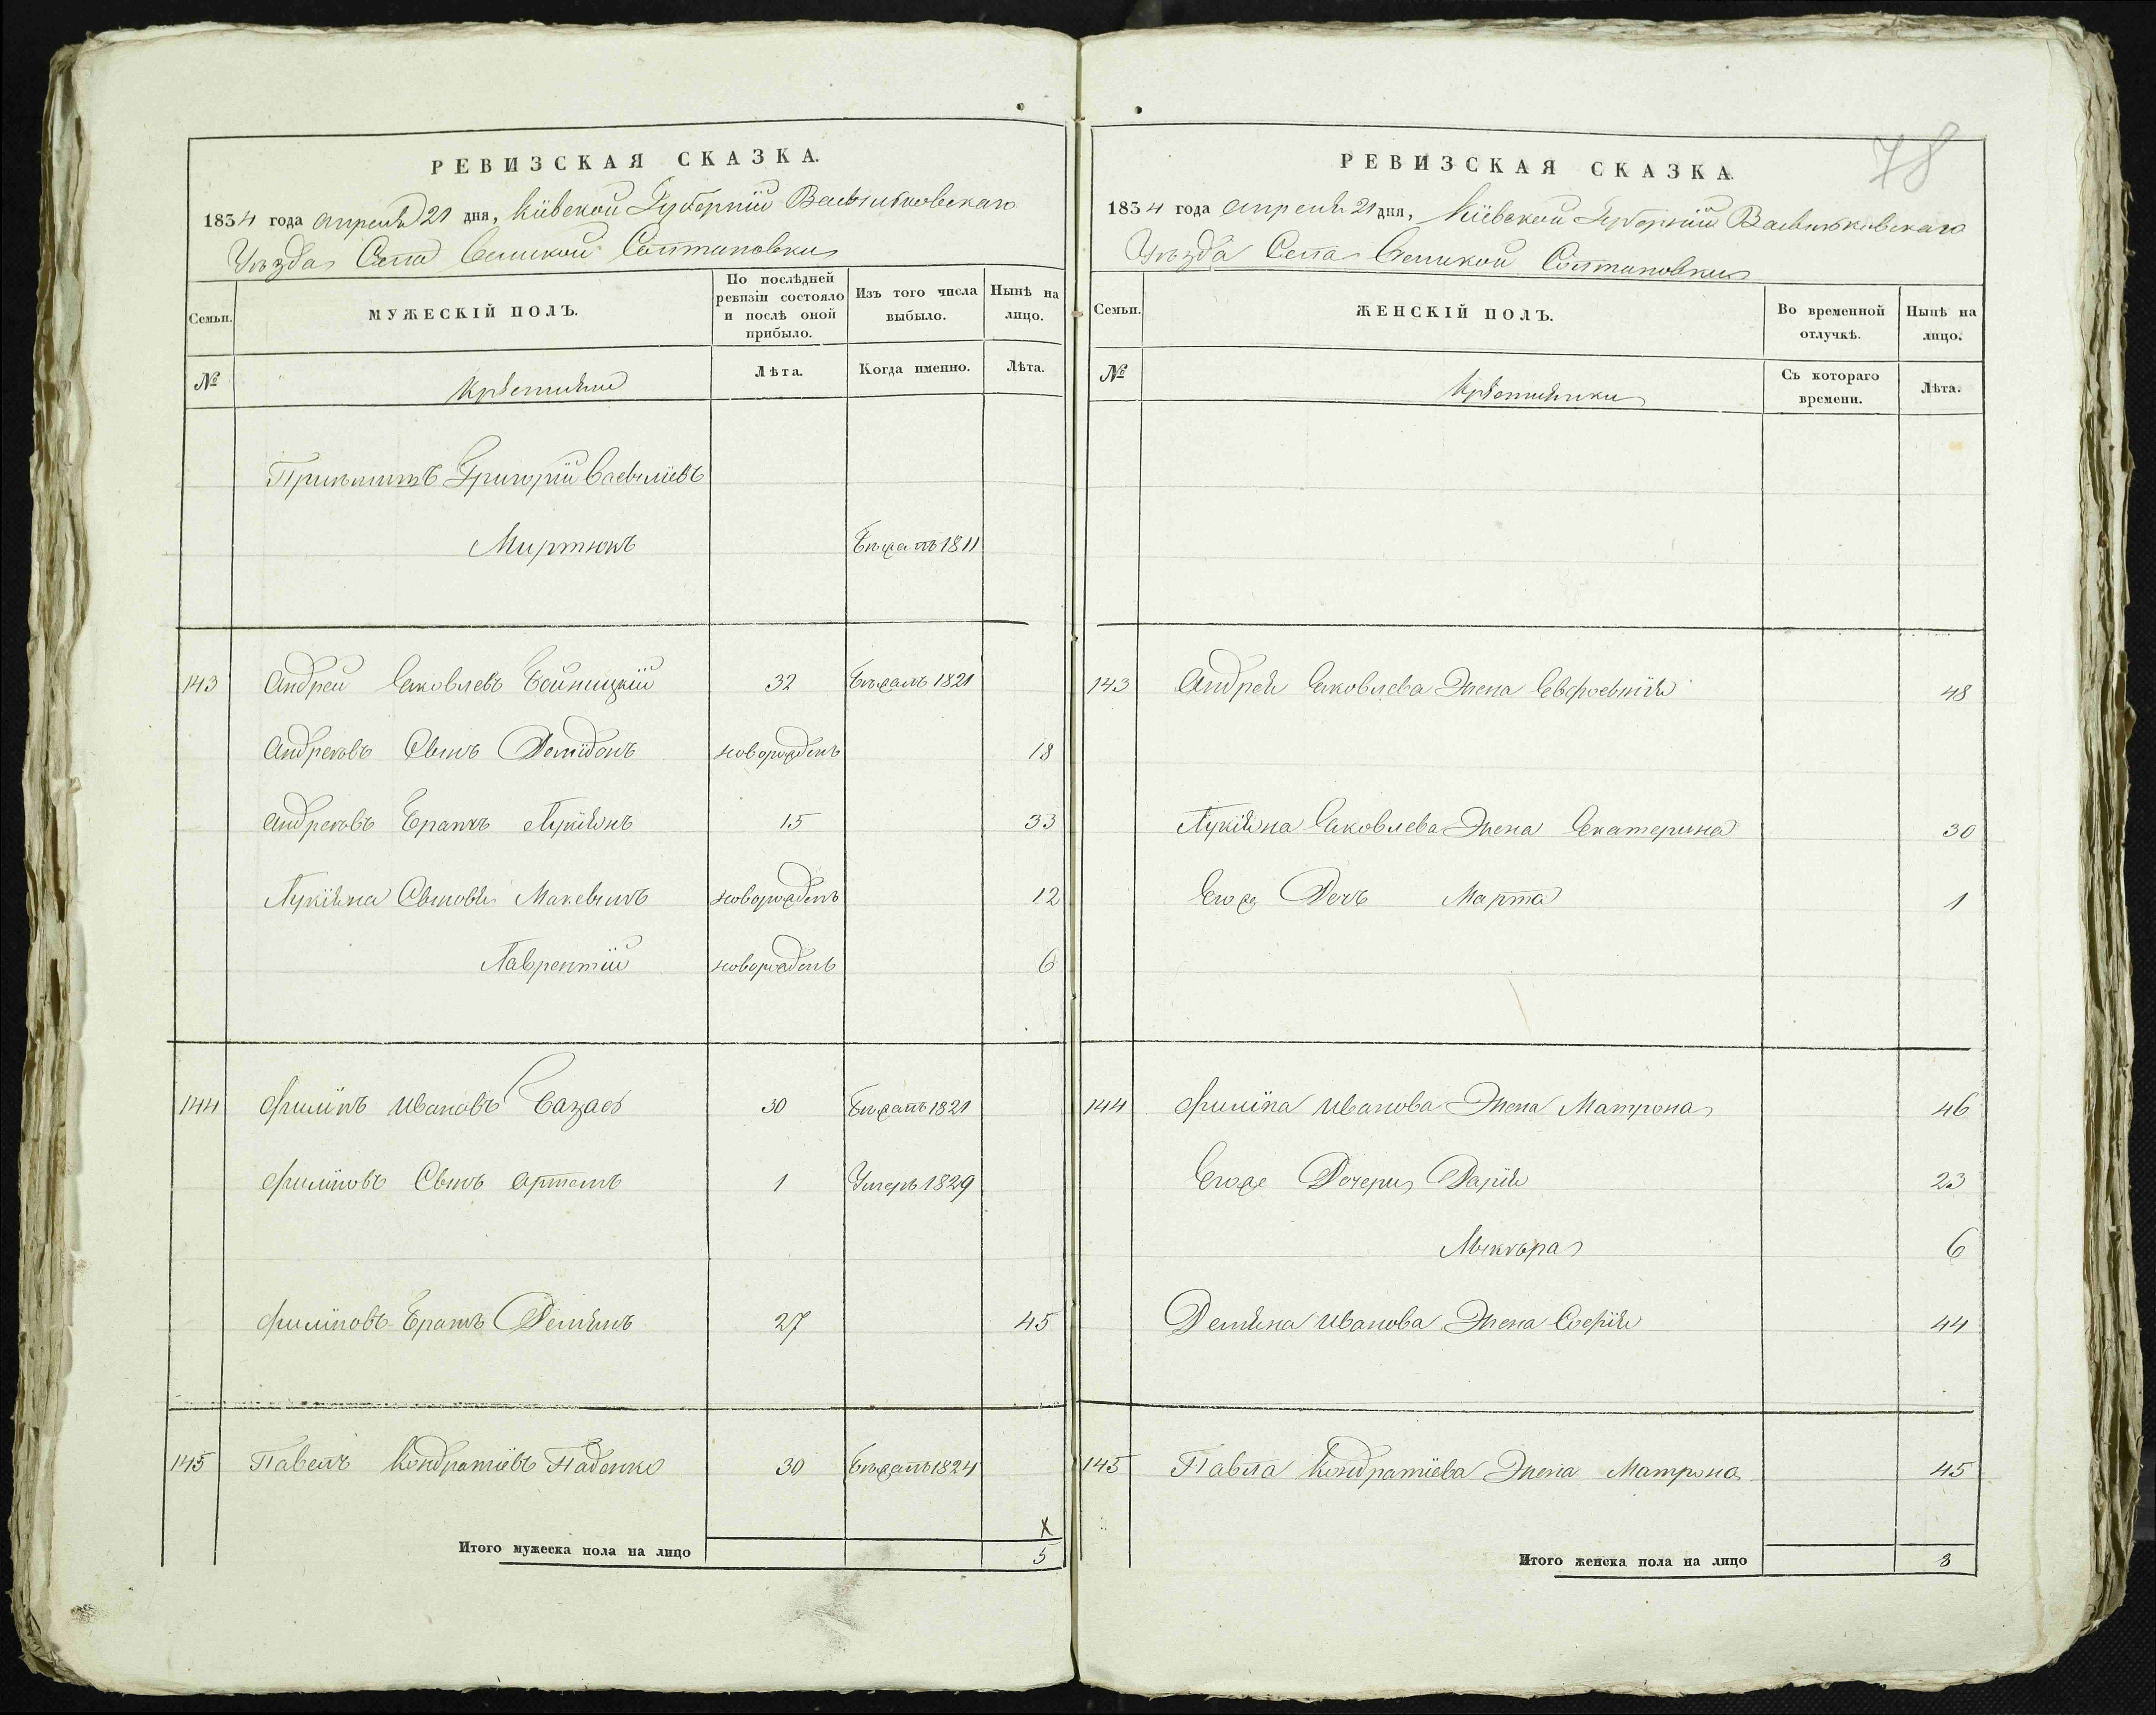 РЕВИЗСКАЯ СКАЗКА.
1834 года Апреля 21 дня, Кіевской Губерніи Васильковскаго
Уѣзда Села Великой Солтановки
Семьи.
МУЖЕСКІЙ ПОЛЪ.
По послѣдней ревизіи состояло и послѣ оной прибыло.
Изъ того числа выбыло.
Нынѣ на лицо.
№
Крѣстьяне
Лѣта.
Когда именно.
Лѣта.
Григорій Васильевъ
Бѣжалъ 1811
143 Андрей Яковлевъ 32 Бѣжалъ 1821
Андреевъ Сынъ Демидонъ новорожденъ 18
Андреевъ Братъ Лукіянъ 15 33
Лукіяна Сыновья Максымъ новорожденъ 12
Лаврентій новорожденъ 6
144 Филипъ Ивановъ 30 Бѣжалъ 1821
Филиповъ Сынъ Артемъ 1 Умеръ 1829
Филиповъ Братъ Демянъ 27 45
145 Павелъ Кондратіевъ 30 Бѣжалъ 1824
Х
Итого мужеска пола на лицо 5
78
РЕВИЗСКАЯ СКАЗКА
1834 года Апреля 21 дня, Кіевской Губерніи Васильковскаго
Уѣзда Села Великой Солтановки
Семьи.
ЖЕНСКІЙ ПОЛЪ.
Во временной отлучкѣ.
Нынѣ на лицо.
№
Крѣстьянки
Съ котораго времени.
Лѣта.
143 Андрея Яковлева Жена Евфросинія 48
Лукіяна Яковлева Жена Екатерина 30
Егож Дочь Марта 1
144 Филипа Иванова Жена Матрона 46
Егоже Дочери Дарія 23
6
Демяна Иванова Жена Софія 44
145 Павла Кондратіева Жена Матрона 45
Итого женска пола на лицо 8